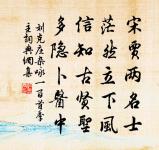 宋贾两名士
茫然立下风
信知古贤圣
多隐卜医中
刘克庄杂咏一百首季
主词典网集